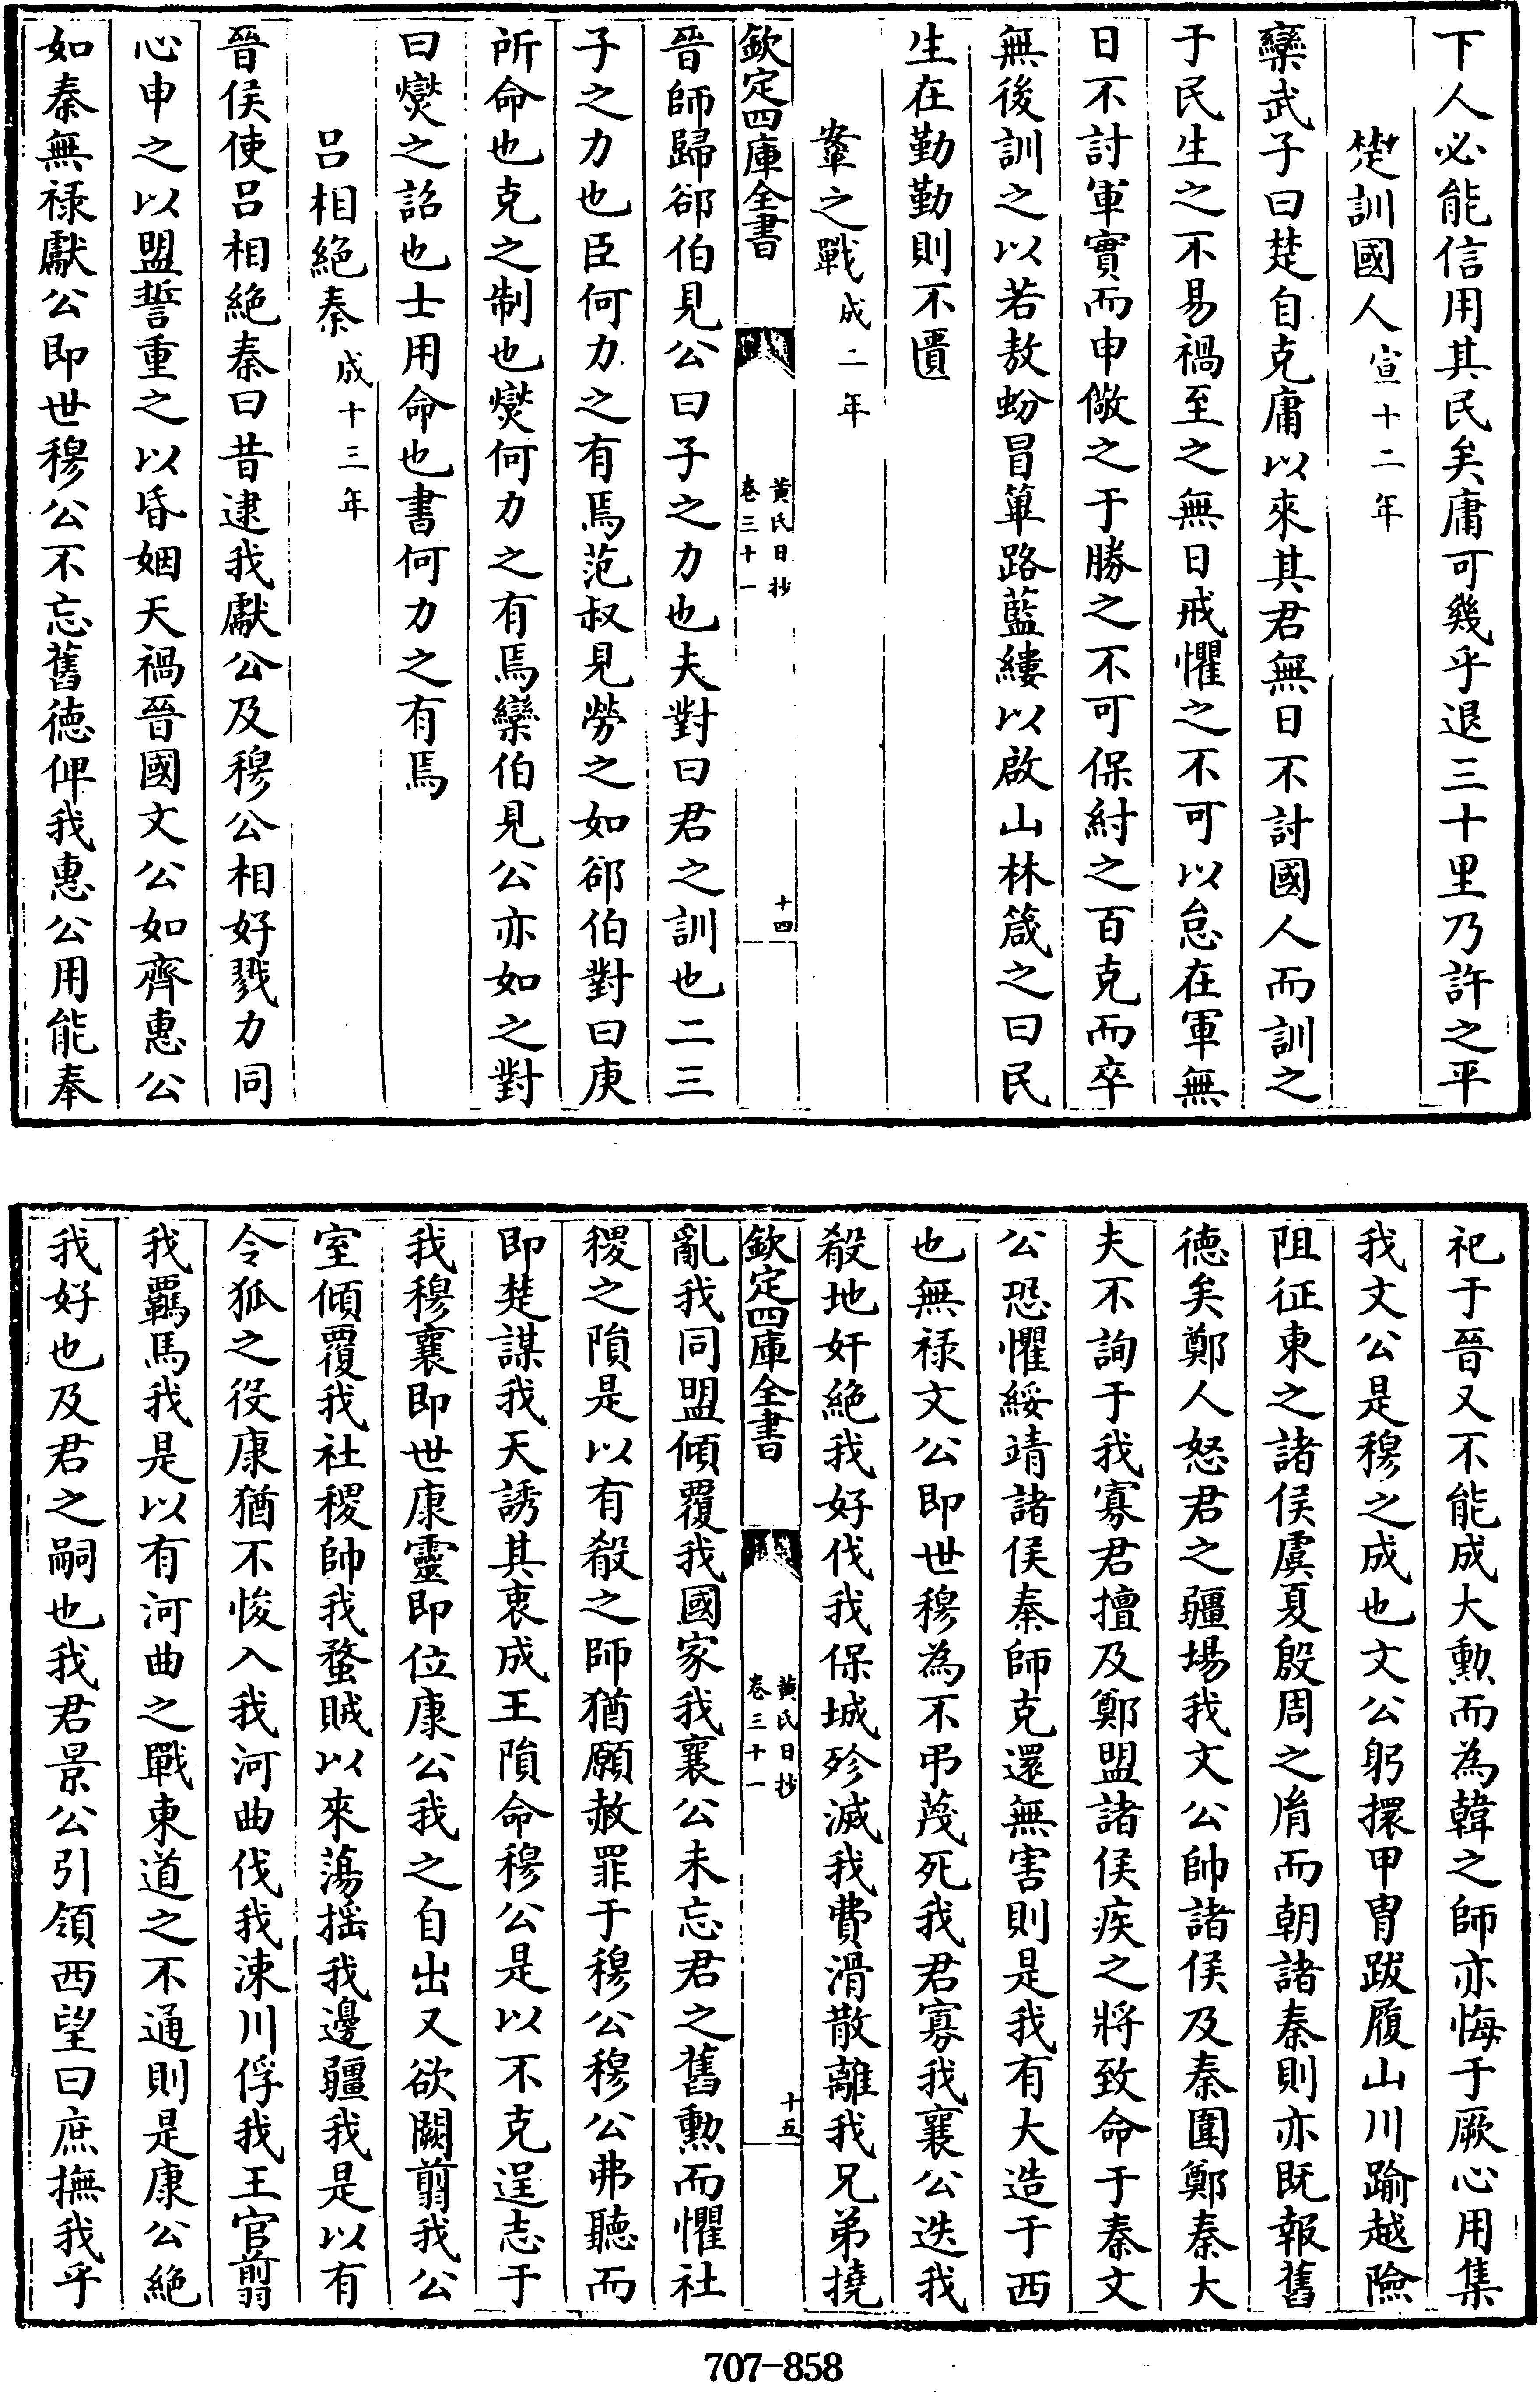 下人必能信用其民矣庸可幾乎退三十里乃許之平
楚訓國人宣十二年
欒武子曰楚自克庸以來其君無日不討國人而訓之
于民生之不易禍至之無日戒懼之不可以怠在軍無
日不討軍實而申儆之于勝之不可保紂之百克而卒
無後訓之以若敖蚡冒篳路藍縷以啟山林箴之曰民
生在勤勤則不匱
鞌之戰成二年
欽定四庫全書
黄氏日抄
卷三十一
十四
晉師歸郤伯見公曰子之力也夫對曰君之訓也二三
子之力也臣何力之有焉范叔見勞之如郤伯對曰庚
所命也克之制也燮何力之有焉欒伯見公亦如之對
曰燮之詔也士用命也書何力之有焉
吕相絶秦成十三年
晉侯使吕相絶秦曰昔逮我獻公及穆公相好戮力同
心申之以盟誓重之以昏姻天禍晉國文公如齊惠公
如秦無禄獻公即世穆公不忘舊徳俾我惠公用能奉
祀于晉又不能成大勲而為韓之師亦悔于厥心用集
我文公是穆之成也文公躬擐甲胄跋履山川踰越險
阻征東之諸侯虞夏殷周之胤而朝諸秦則亦既報舊
徳矣鄭人怒君之疆埸我文公帥諸侯及秦圍鄭秦大
夫不詢于我寡君擅及鄭盟諸侯疾之將致命于秦文
公恐懼綏靖諸侯秦師克還無害則是我有大造于西
也無禄文公即世穆為不弔蔑死我君寡我襄公迭我
殽地奸絶我好伐我保城殄滅我費滑散離我兄弟撓
欽定四庫全書
黄氏日抄
卷三十一
十五
亂我同盟傾覆我國家我襄公未忘君之舊勲而懼社
稷之隕是以有殽之師猶願赦罪于穆公穆公弗聽而
即楚謀我天誘其衷成王隕命穆公是以不克逞志于
我穆襄即世康靈即位康公我之自出又欲闕翦我公
室傾覆我社稷帥我蝥賊以來蕩揺我邊疆我是以有
令狐之役康猶不悛入我河曲伐我涑川俘我王官翦
我羈馬我是以有河曲之戰東道之不通則是康公絶
我好也及君之嗣也我君景公引領西望曰庶撫我乎
707-858